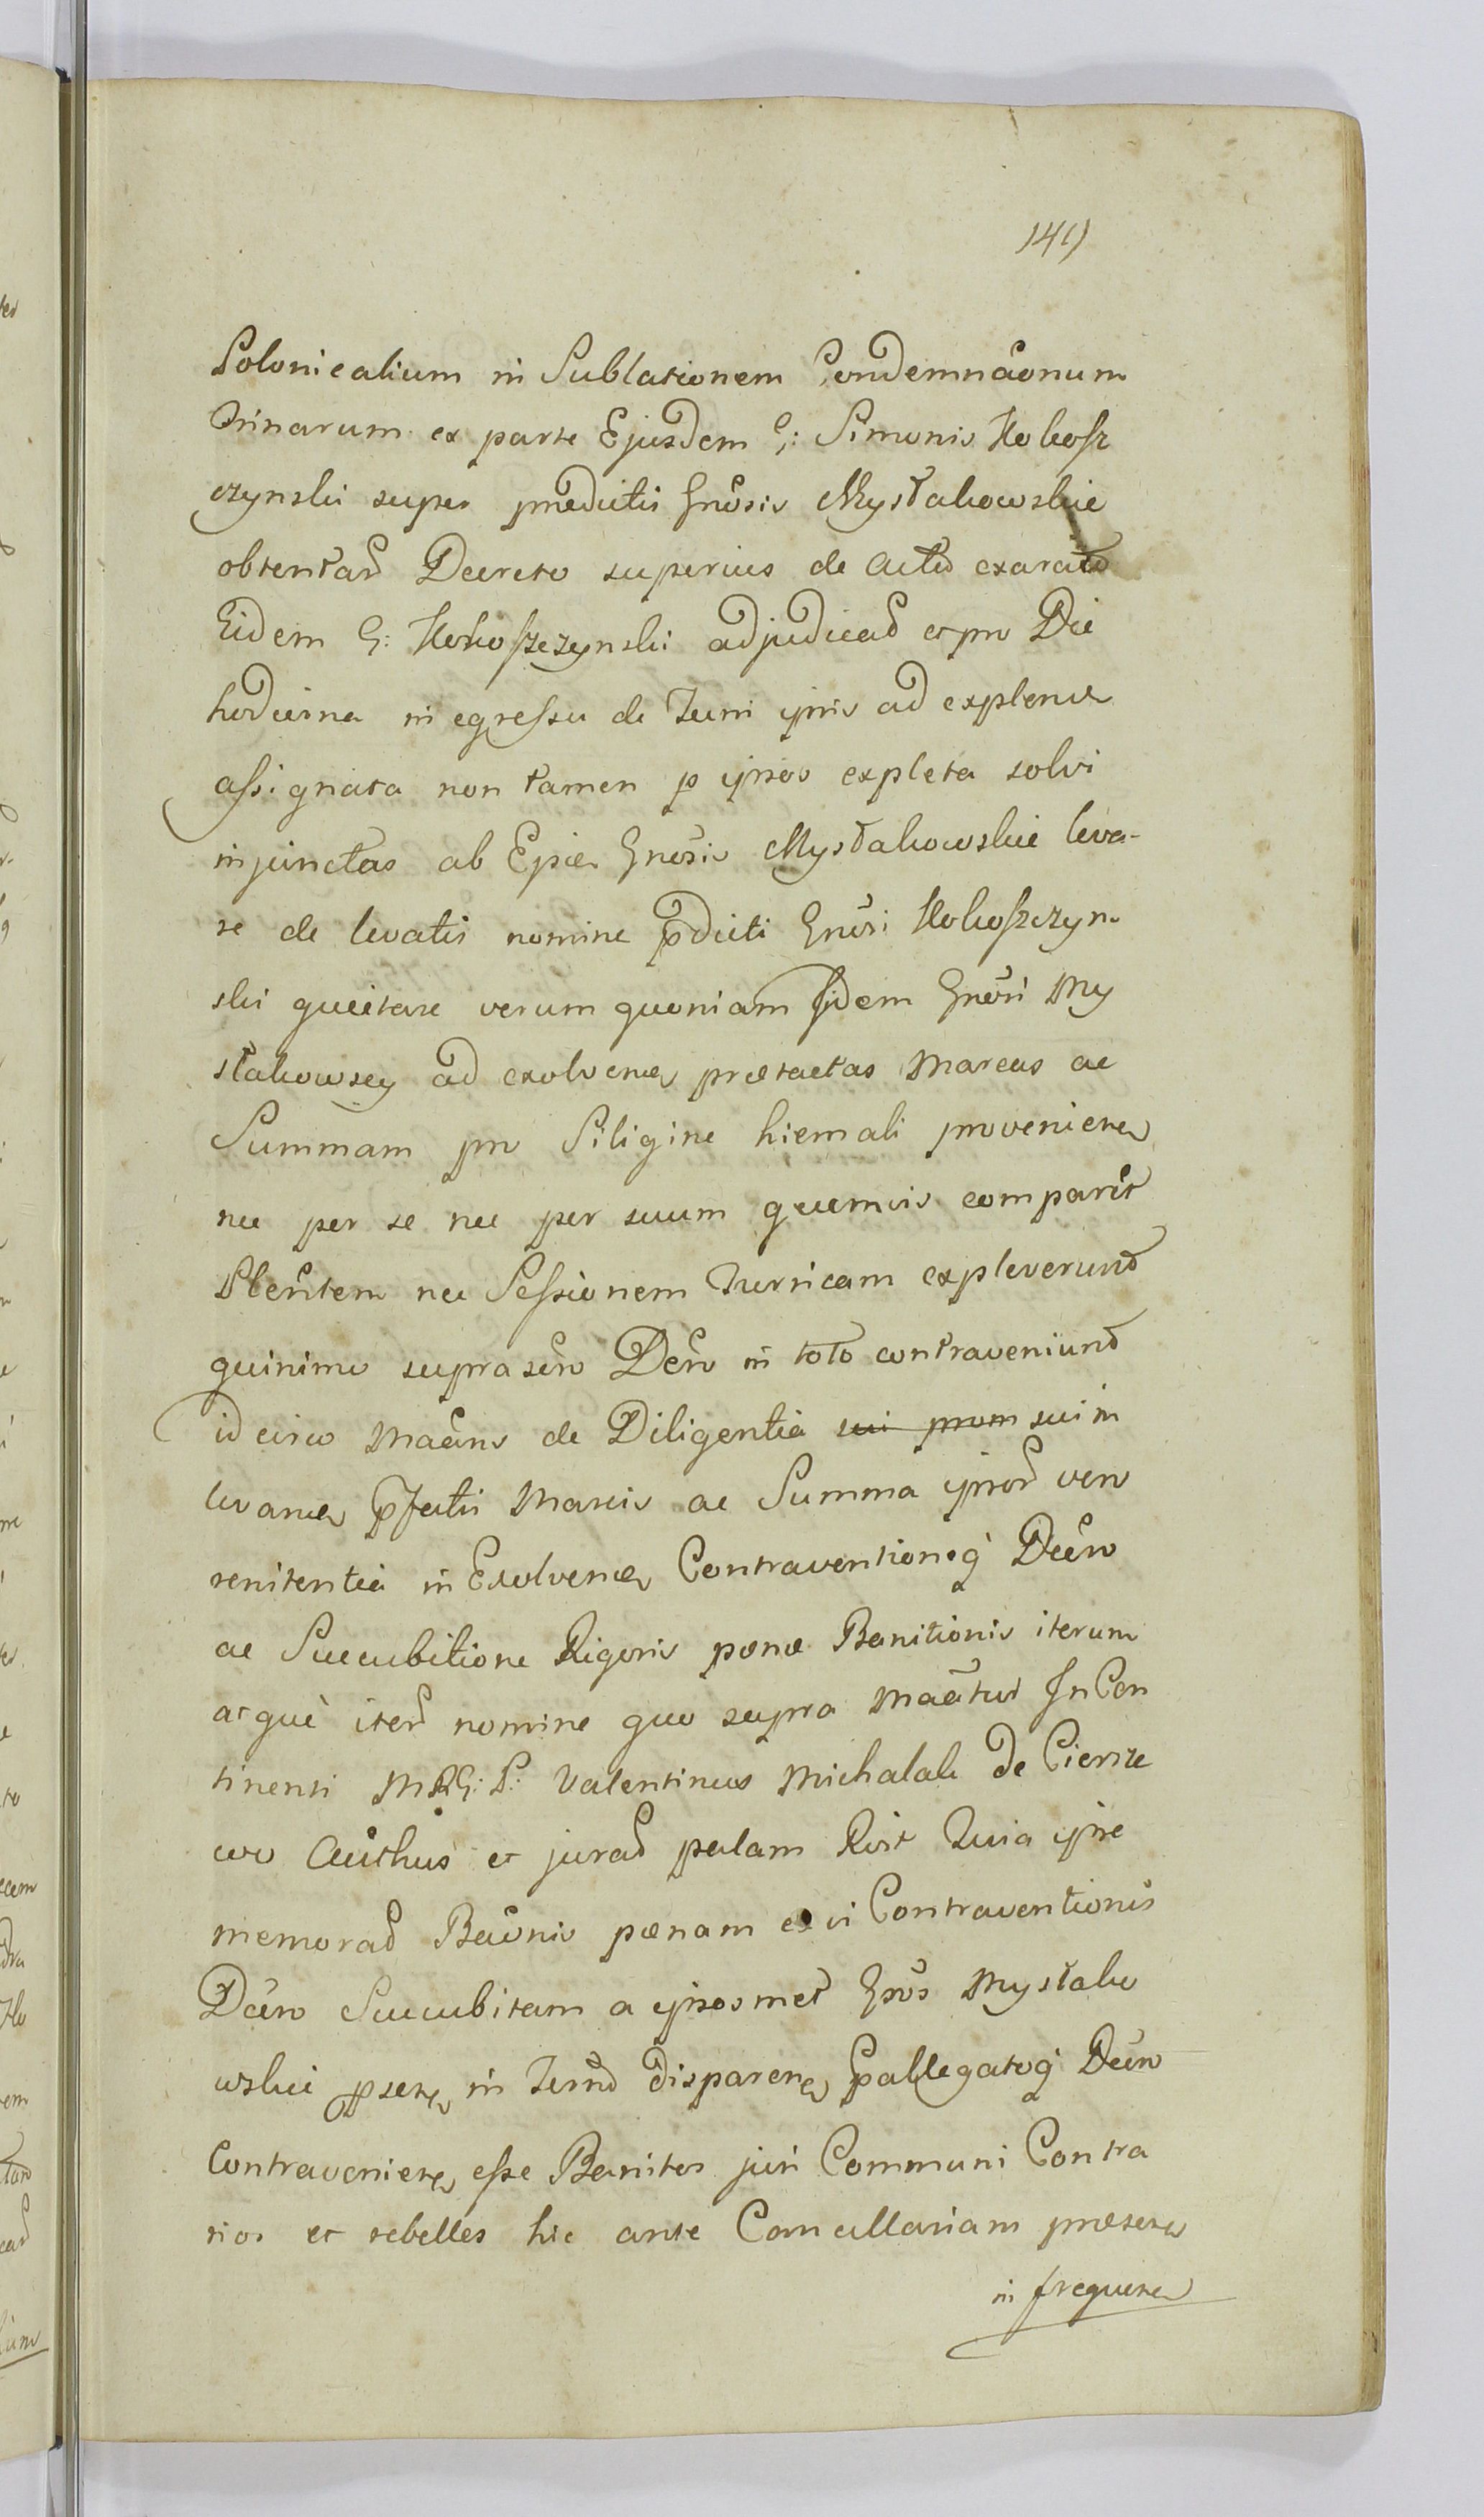 141)
Polonicalium in Sublationem Condemnãonum
Trinarum ex parte Ejusdem G: Simonis Kokosz
czynski super prædictis Gnõsis Mystakowskie
obtentard Decreto superius de Actu exarato
Eidem G: Kokoszczynski adjudicad et pro Die
hodierna in egressu de Turri ipsis ad explend
assignata non tamen p ipsos expleta solvi
injunctas ab Epie Gnõsis Mystakowskie leva-
re de levatis nomine pdicti Gnõsi Kokoszczyn-
ski quietare verum quoniam Iidem Gnõsi My
stakowscy ad exolvend prætactas Marcas ac
Summam pro Siligine hiemali provenient
nec per se nec per suum quemvis comparẽt
Plenõtem nec Sessionem Turricam expleverunt
quinimo suprascrõ Decrõ in toto contraveniunt
idcirco Maãns de Diligentia sui prom sui in
levand pfatis Marcis ac Summa ipsord vero
renitentia in Exolvend Contraventioneq Decrõ
ac Succubitione Rigoris pœnæ Banitionis iterum
atquè iterd nomine quo supra Maãtur In Con
tinenti MRG: P: Valentinus Michalak de Cierze
wo Authus et jurad palam Rvit Quia ipse
memorad Baõnis pœnam ex vi Contraventionis
Decrõ Succubitam a ipsosmet Gnõs Mystako
wskie psent in Termõ disparend pallegatoq Decrõ
Contravenient esse Banitos juri Communi Contra
rios et rebelles hic ante Cancellariam præsent
in frequent